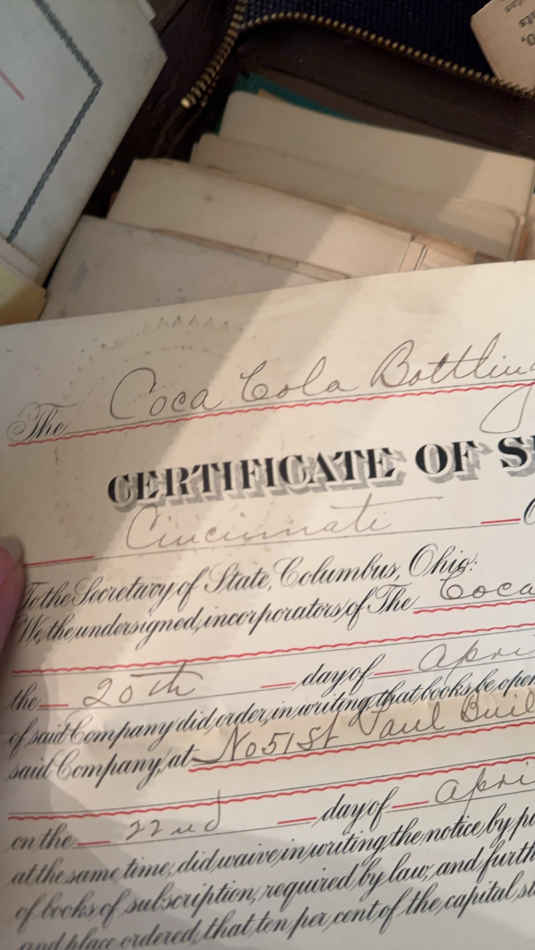 The Coca Cola Bottling
CERTIFICATE OF S
Cincinnati
To the Secretary of State, Columbus, Ohio:
We, the undersigned, incorporators, of The Coca
the 20th day of Apri
of said Company did, order, in writing that books be open
said Company, at No 51 St Paul Buil
on the 22nd day of Apri
at the same time, did waive in writing the notice by pu
of books of subscription, required by law; and furth
and place ordered, that ten per cent of the capital st